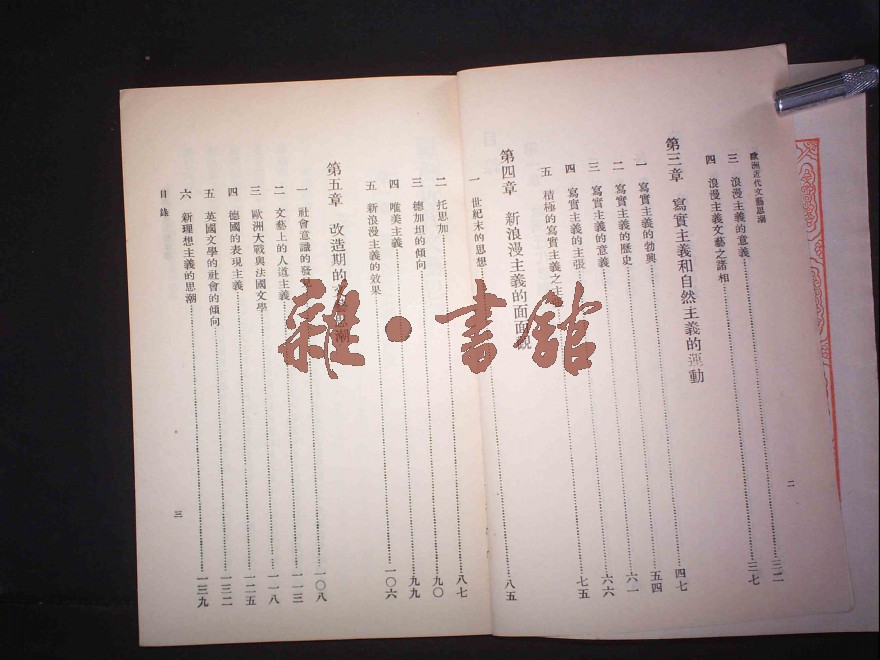 歐洲近代文藝思潮
三 浪漫主義的意義……三二
四 浪漫主義文藝之諸相……三七
第三章 寫實主義和自然主義的運動……四七
一 寫實主義的勃興……五四
二 寫實主義的歷史……六一
三 寫實主義的意義……六六
四 寫實主義的主張……七五
五 積極的寫實主義之
第四章 新浪漫主義的面面觀……八五
二
一 世紀末的思想……八七
二 托思加……九〇
三 德加坦的傾向……九九
四 唯美主義……一〇六
五 新浪漫主義的效果
第五章 改造期的思潮……一〇八
一 社會意識的發……一一三
二 文藝上的人道主義……一一八
三 歐洲大戰與法國文學……一二五
四 德國的表現主義……一三二
五 英國文學的社會的傾向……一三九
六 新理想主義的思潮
目錄
三
雜·書館